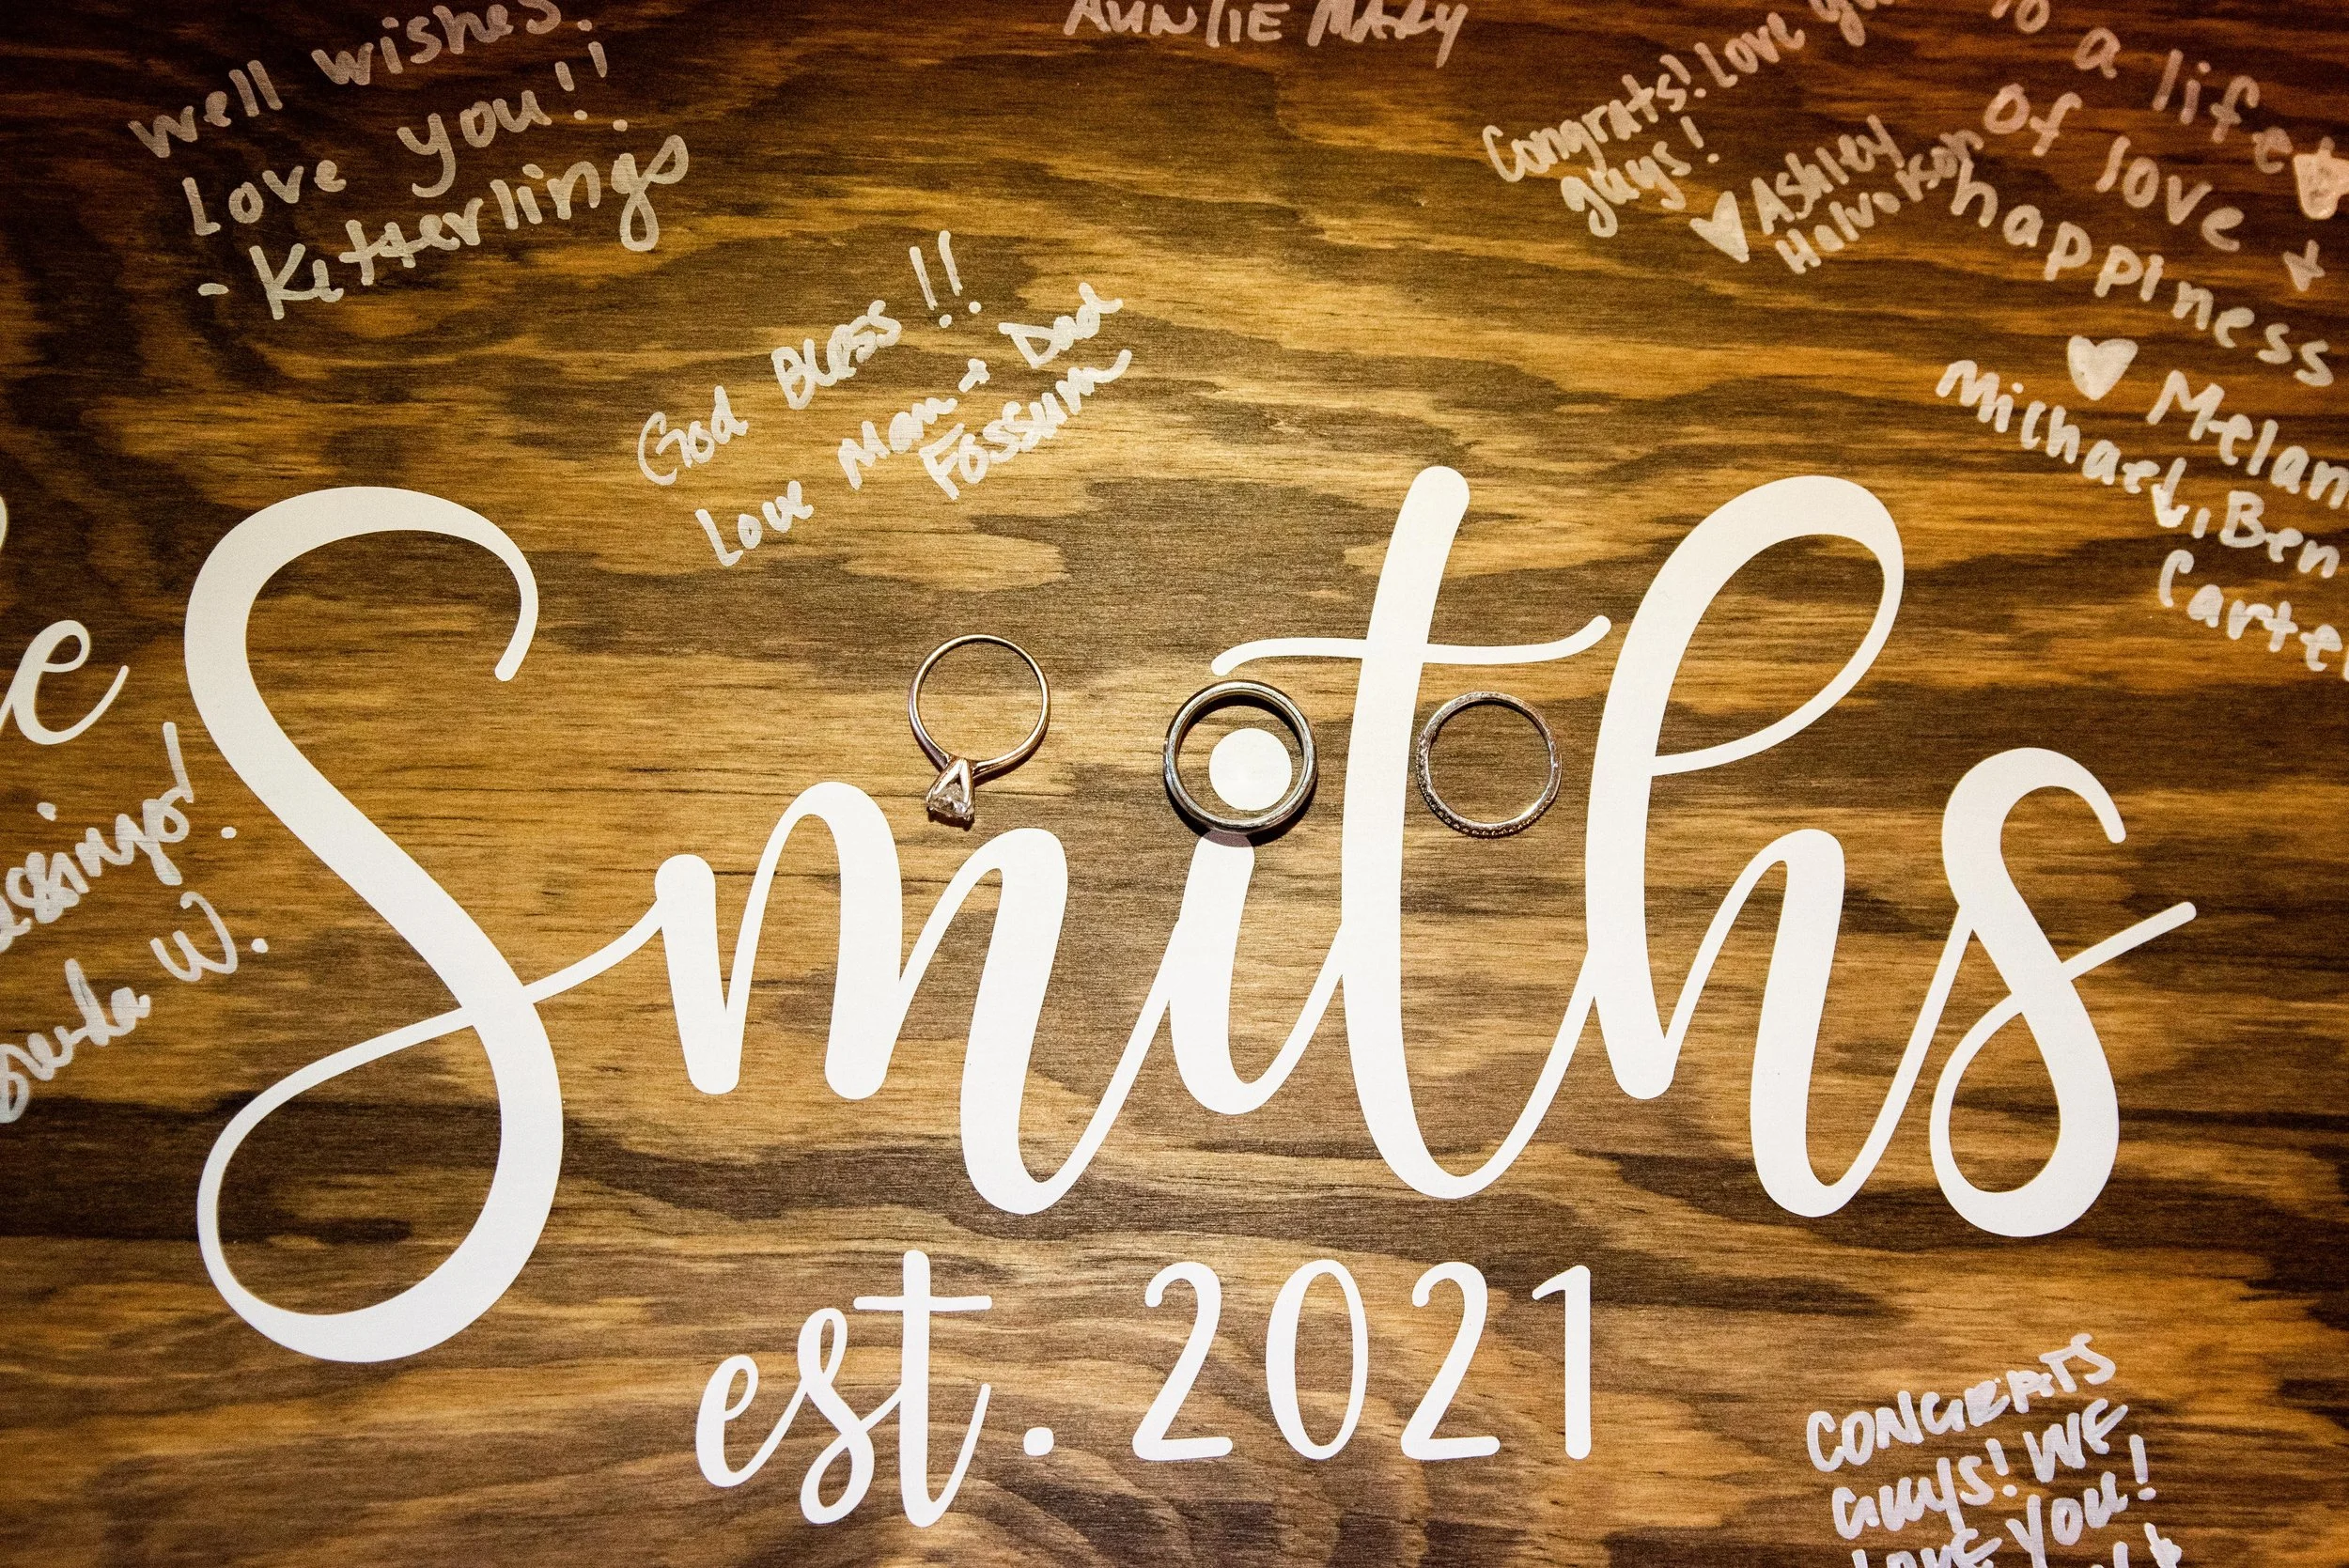 well wishes.
Love you!!
- Ketterlings
AUNTIE MARY
Congrats! Love
guys!
Ashley
Halvorson
to a life
of love +
happiness
Michael, Ben
God Bless!!
Love Mom + Dad
Fossum
W.
Smiths
est. 2021
CONGRATS
GUYS! WE
LOVE YOU!